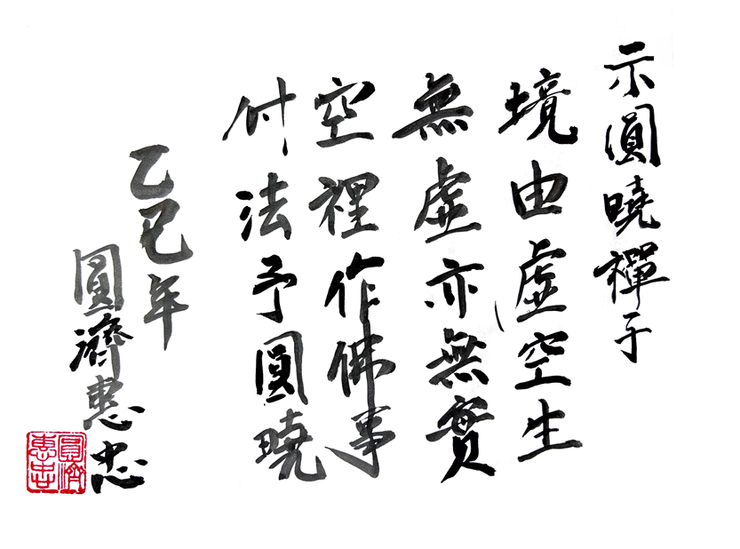 示圓曉禪子
境由虛空生
無虛亦無實
空裡作佛事
付法予圓曉
乙巳年
圓濟惠忠
圓濟惠忠